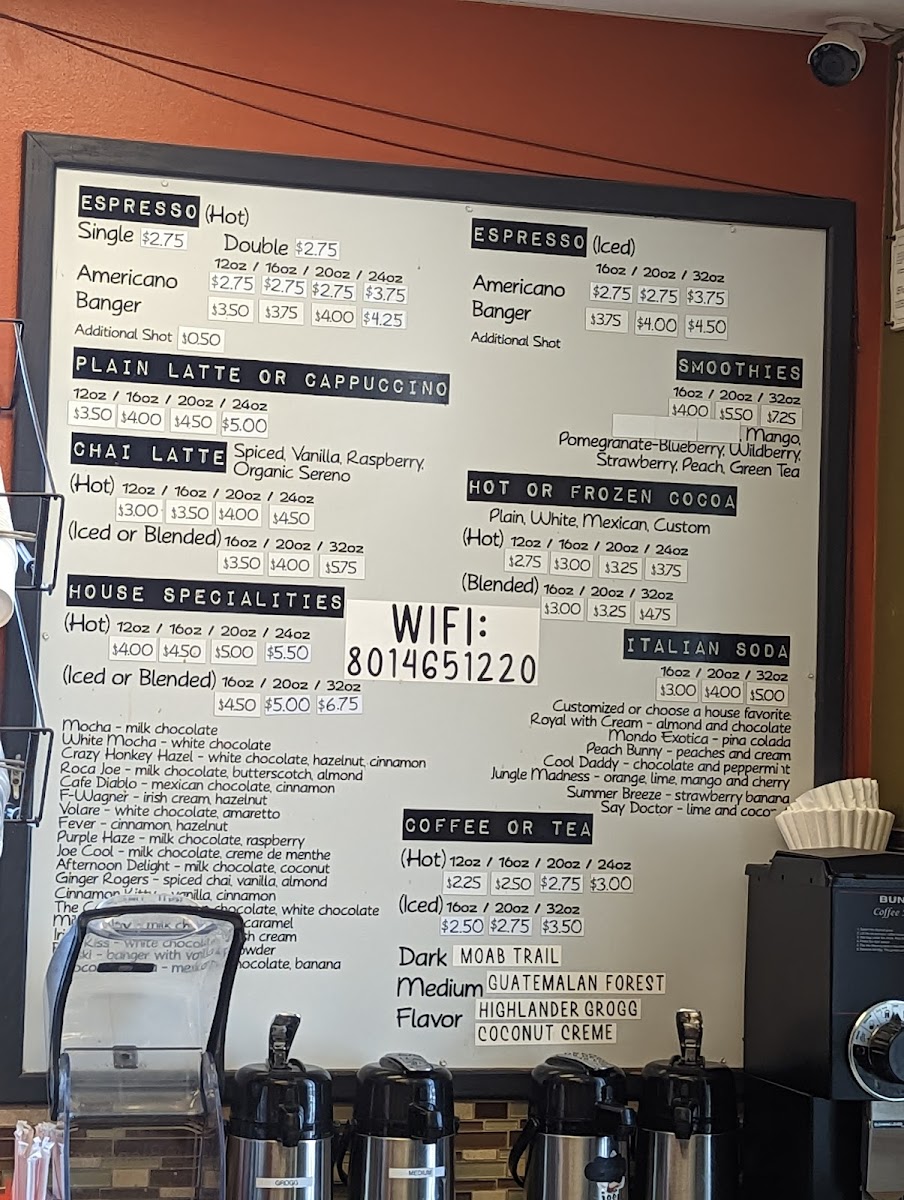 ESPRESSO (Hot)
Single $2.75 Double $2.75
12oz / 16oz / 20oz / 24oz
Americano $2.75 $2.75 $2.75 $3.75
Banger $3.50 $3.75 $4.00 $4.25
Additional Shot $0.50
PLAIN LATTE OR CAPPUCCINO
12oz / 16oz / 20oz / 24oz
$3.50 $4.00 $4.50 $5.00
CHAI LATTE Spiced, Vanilla, Raspberry,
Organic Sereno
(Hot) 12oz / 16oz / 20oz / 24oz
$3.00 $3.50 $4.00 $4.50
(Iced or Blended) 16oz / 20oz / 32oz
$3.50 $4.00 $5.75
HOUSE SPECIALITIES
(Hot) 12oz / 16oz / 20oz / 24oz
$4.00 $4.50 $5.00 $5.50
(Iced or Blended) 16oz / 20oz / 32oz
$4.50 $5.00 $6.75
Mocha - milk chocolate
White Mocha - white chocolate
Crazy Honkey Hazel - white chocolate, hazelnut, cinnamon
Roca Joe - milk chocolate, butterscotch, almond
Cafe Diablo - mexican chocolate, cinnamon
F-Wagner - irish cream, hazelnut
Volare - white chocolate, amaretto
Fever - cinnamon, hazelnut
Purple Haze - milk chocolate, raspberry
Joe Cool - milk chocolate, creme de menthe
Afternoon Delight - milk chocolate, coconut
Ginger Rogers - spiced chai, vanilla, almond
Cinnamon vanilla, cinnamon
The chocolate, white chocolate
caramel
cream
Kiss - white
banger with
chocolate, banana
WIFI:
8014651220
ESPRESSO (Iced)
16oz / 20oz / 32oz
Americano $2.75 $2.75 $3.75
Banger $3.75 $4.00 $4.50
Additional Shot
SMOOTHIES
16oz / 20oz / 32oz
$4.00 $5.50 $7.25
Mango,
Pomegranate-Blueberry, Wildberry,
Strawberry, Peach, Green Tea
HOT OR FROZEN COCOA
Plain, White, Mexican, Custom
(Hot) 12oz / 16oz / 20oz / 24oz
$2.75 $3.00 $3.25 $3.75
(Blended) 16oz / 20oz / 32oz
$3.00 $3.25 $4.75
ITALIAN SODA
16oz / 20oz / 32oz
$3.00 $4.00 $5.00
Customized or choose a house favorite
Royal with Cream - almond and chocolate
Mondo Exotica - pina colada
Peach Bunny - peaches and cream
Cool Daddy - chocolate and peppermint
Jungle Madness - orange, lime, mango and cherry
Summer Breeze - strawberry banana
Say Doctor - lime and
COFFEE OR TEA
(Hot) 12oz / 16oz / 20oz / 24oz
$2.25 $2.50 $2.75 $3.00
(Iced) 16oz / 20oz / 32oz
$2.50 $2.75 $3.50
Dark MOAB TRAIL
Medium GUATEMALAN FOREST
Flavor HIGHLANDER GROGG
COCONUT CREME
BUN
Coffee
GROGG
MEDIUM